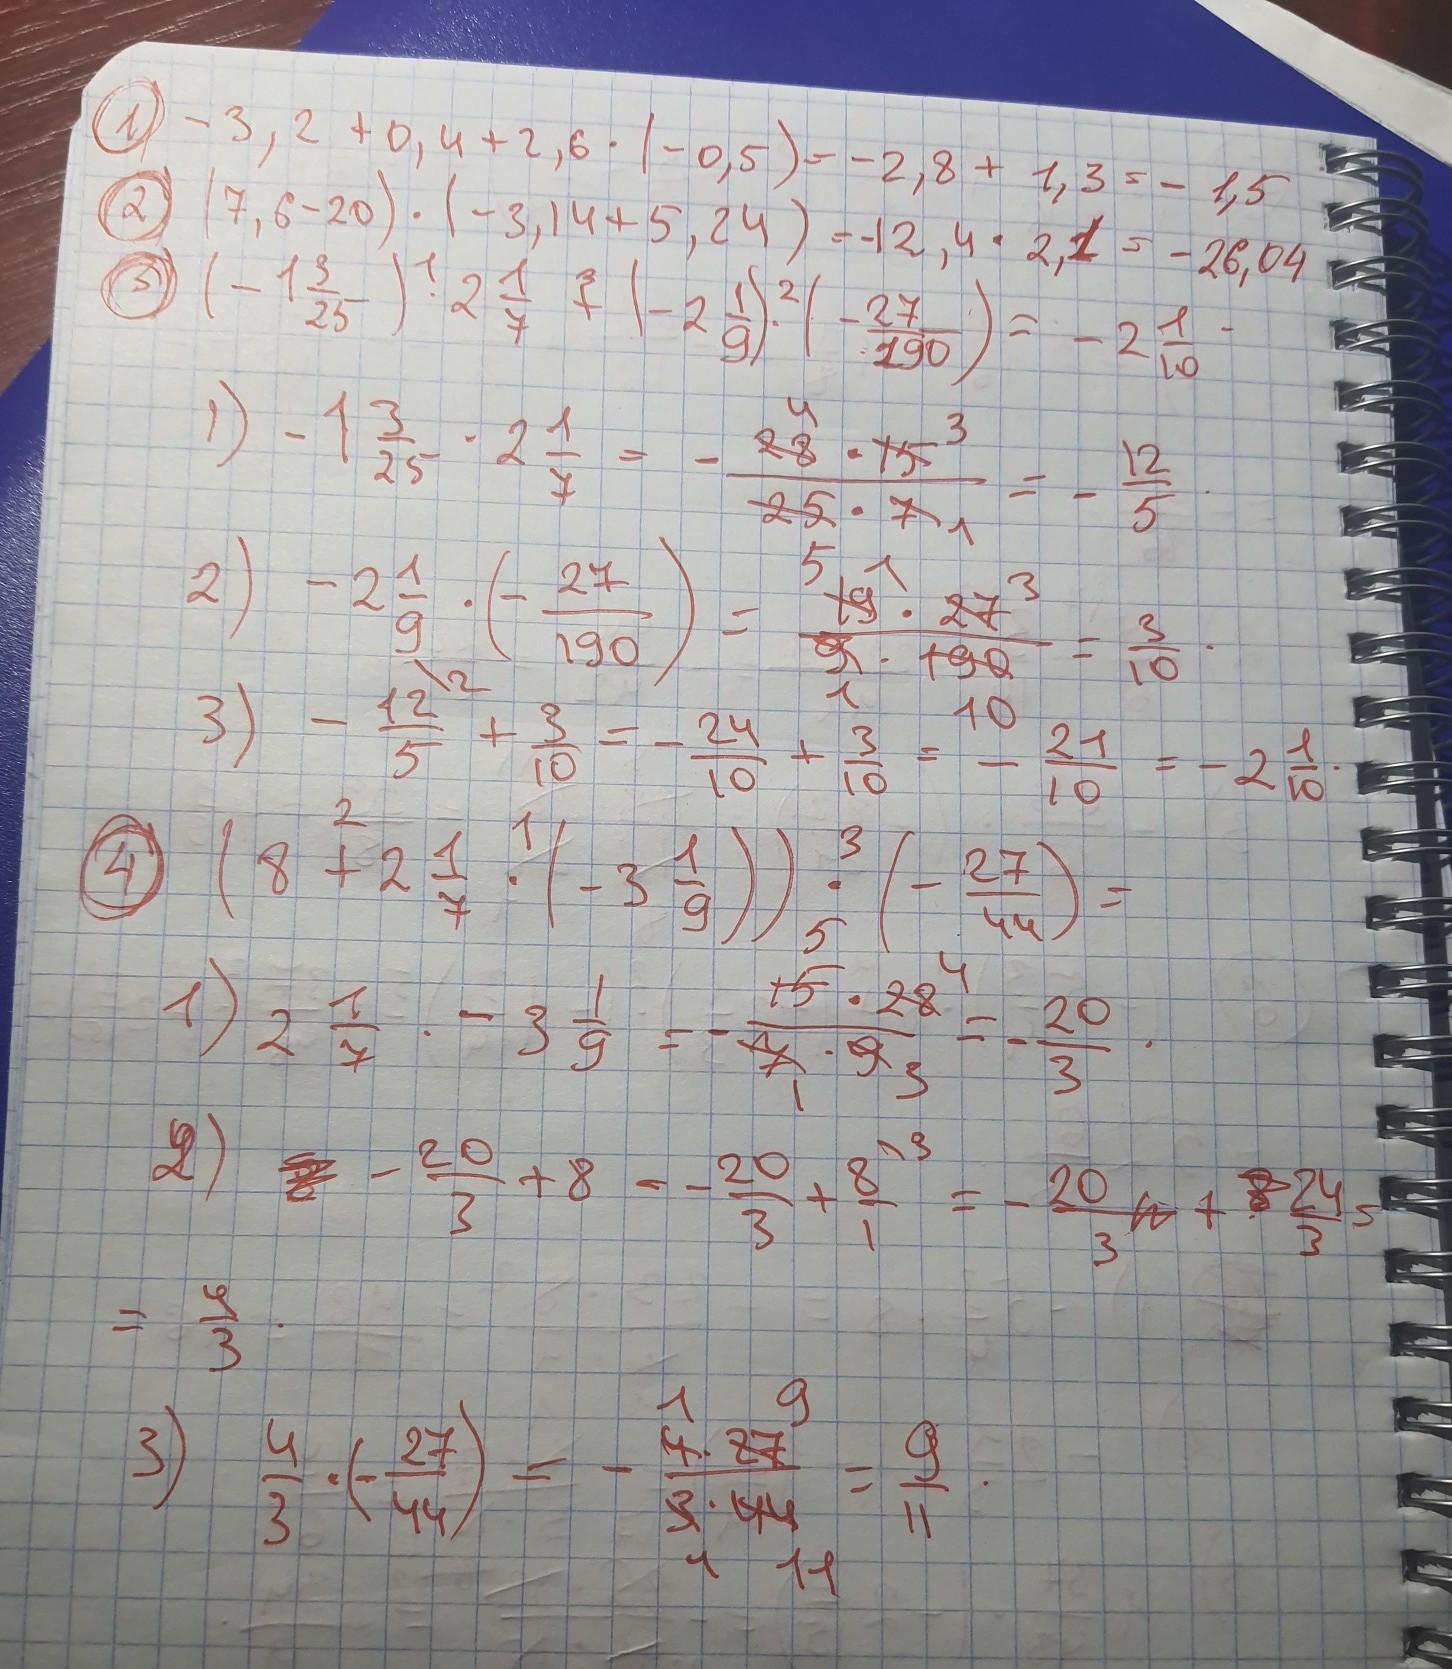 ① -3,2 + 0,4 + 2,6 · (-0,5) = -2,8 + 1,3 = -1,5
② (7,6-20) · (-3,14+5,24) = -12,4 · 2,1 = -26,04
③ (-1 3/25) ·¹ 2 1/7 +³ (-2 1/9) ·² (-27/190) = -2 1/10.
1) -1 3/25 · 2 1/7 = - 28 4 · 15 3 / 25 5 · 7 1 = - 12/5.
2) -2 1/9 · (-27/190) = 19 1 · 27 3 / 9 1 · 190 10 = 3/10.
3) - 12/5 \2 + 3/10 = - 24/10 + 3/10 = - 21/10 = -2 1/10.
④ (8 +² 2 1/7 ·¹ (-3 1/9)) ·³ (-27/44) =
1) 2 1/7 · - 3 1/9 = - 15 5 · 28 4 / 7 1 · 9 3 = - 20/3.
2) - 20/3 + 8 = - 20/3 + 8/1 \3 = - 20/3 + 24/3 =
= 4/3.
3) 4/3 · (-27/44) = - 4 1 · 27 9 / 3 1 · 44 11 = 9/11.